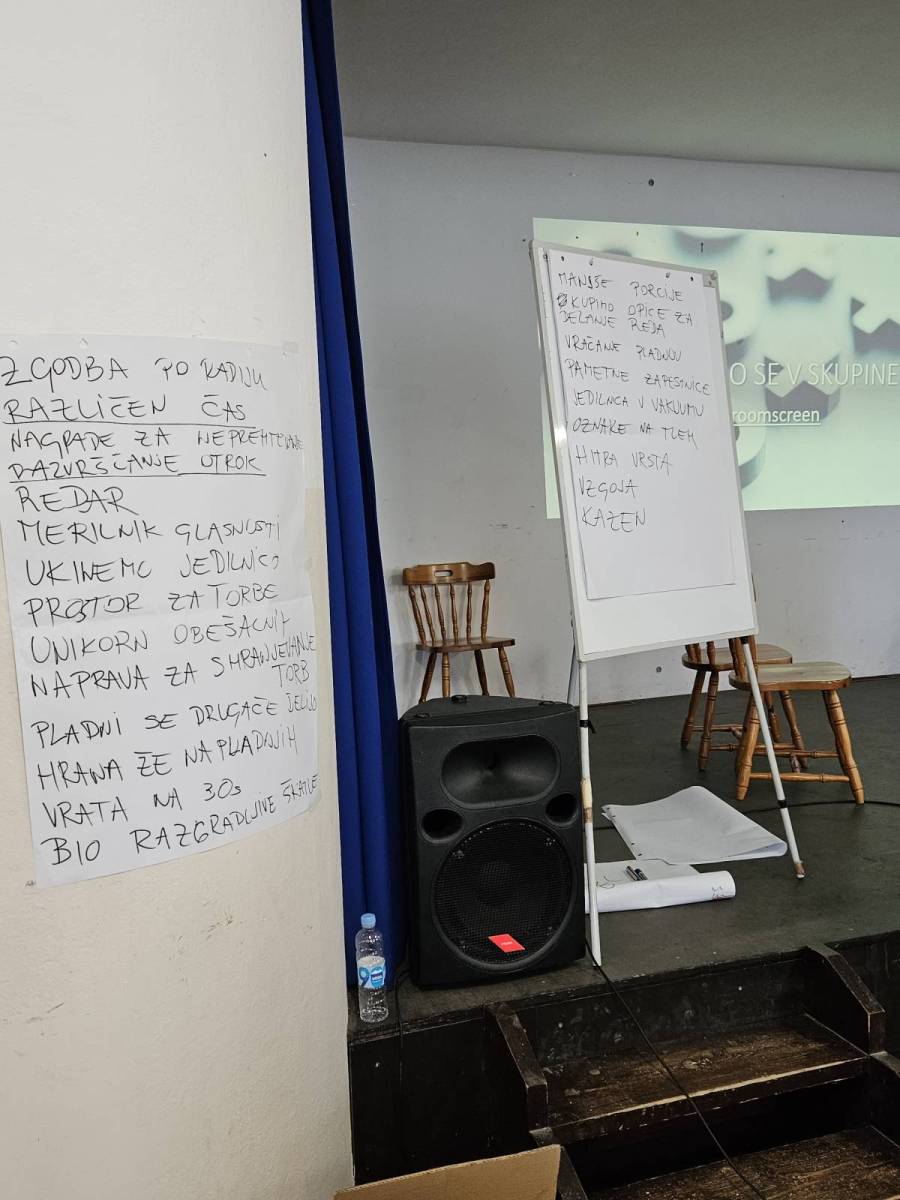 ZGODBA PO RADIJU
RAZLIČEN ČAS
NAGRADE ZA
RAZVRŠČANJE OTROK
REDAR
MERILNIK GLASNOSTI
UKINEMO JEDILNICO
PROSTOR ZA TORBE
UNIKORN OBEŠALNIK
NAPRAVA ZA SHRANJEVANJE
TORB
PLADNI SE DRUGAČE DELIJO
HRANA ŽE NA PLADNJIH
VRATA NA 30s
BIO RAZGRADLJIVE ŠKATLE
MANJŠE PORCIJE
KUPIMO OPICE ZA
DELANJE REDA
VRAČANJE PLADNJOV
PAMETNE ZAPESTNICE
JEDILNICA V VAKUUMU
OZNAKE NA TLEH
HITRA VRSTA
VZGOJA
KAZEN
O SE V SKUPINE
roomscreen